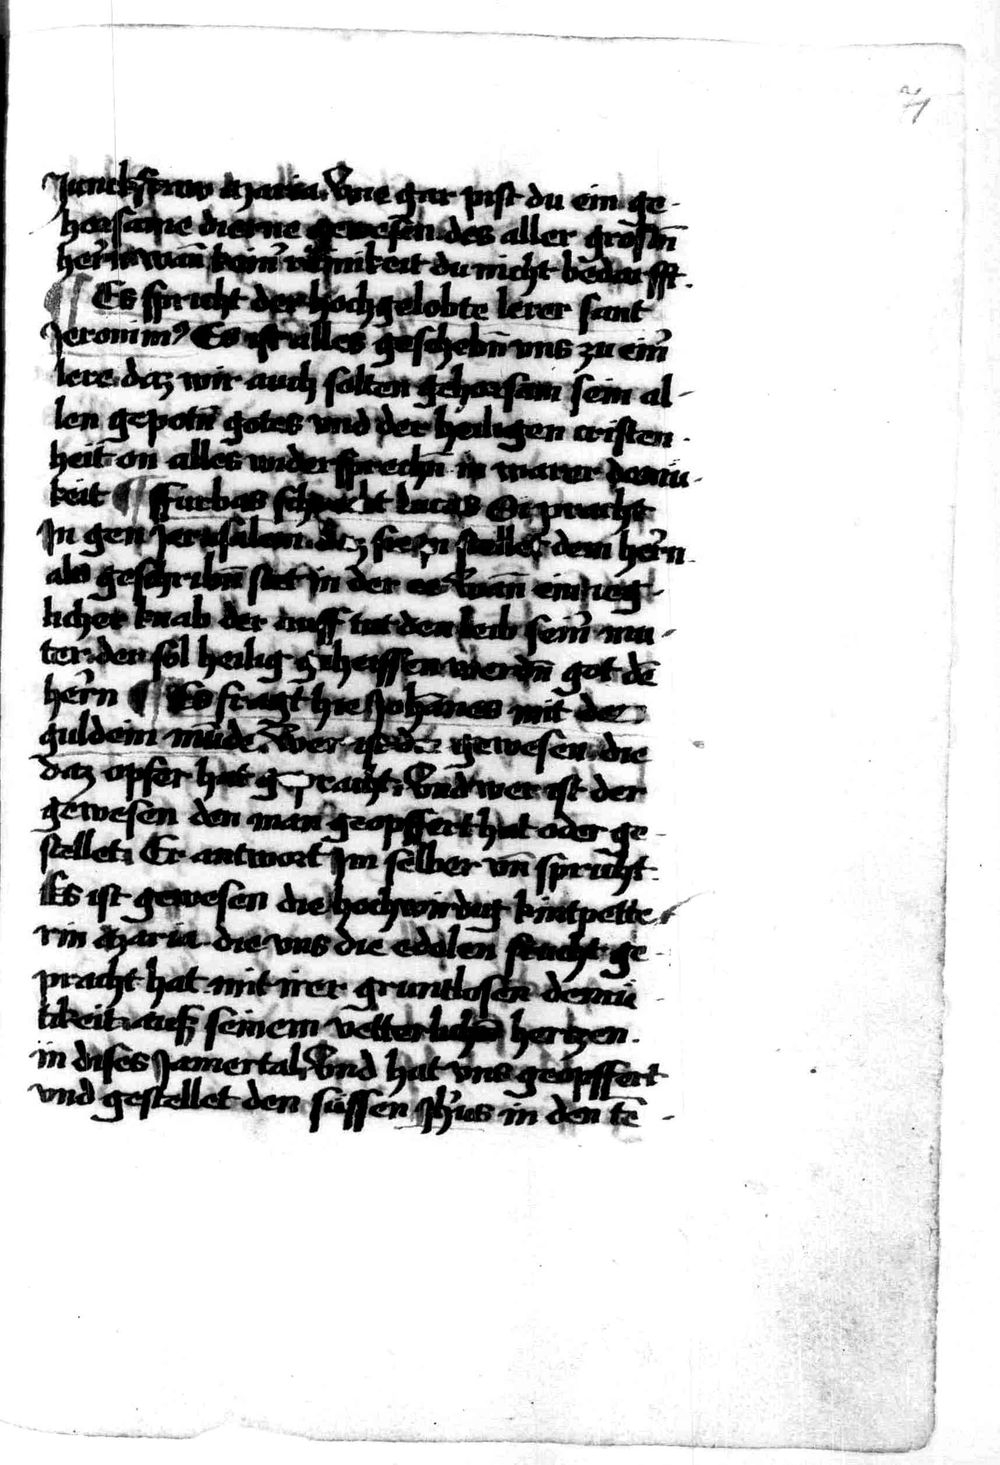 Junckfraw maria. Wie gar pist du ein ge-
horsame dierne gewesen des aller grosten
herrn wañ keiner reinikeit du nicht bedarfft.
¶ Es spricht der hochgelobte lerer sant
Jeronim9 Es ist alles geschehñ vns zu eim̃
lere. daz wir auch solten gehorsam sein al-
len gepotñ gotes vnd der heiligen cristen-
heit on alles widersprechñ in warer demu-
keit ¶ ffurbas schreibt lucas Er pracht
In gen Jerusalem. daz sie In stellet dem herrn
als geschribñ stet in der ee Wañ ein ieg-
licher knab der auff tut den leib seiner mu-
ter. der sol heilig geheissen werdñ got dē
herrn ¶ Es fragt hie Johānes mit dem
guldein munde. Wer ist die gewesen. die
daz opfer hat gepracht. Vnd wer ist der
gewesen den man geopffert hat oder ge-
stellet. Er antwort Im selber vñ spricht.
Es ist gewesen die hochwirdig kintpette-
rin maria die vns die edelen frucht ge-
pracht hat mit irer gruntlosen demü-
tikeit. auß seinem vetterlichē hertzen.
in dises Jamertal. Vnd hat vns geopffert
vnd gestellet den süssen Jh̃us in den tē-